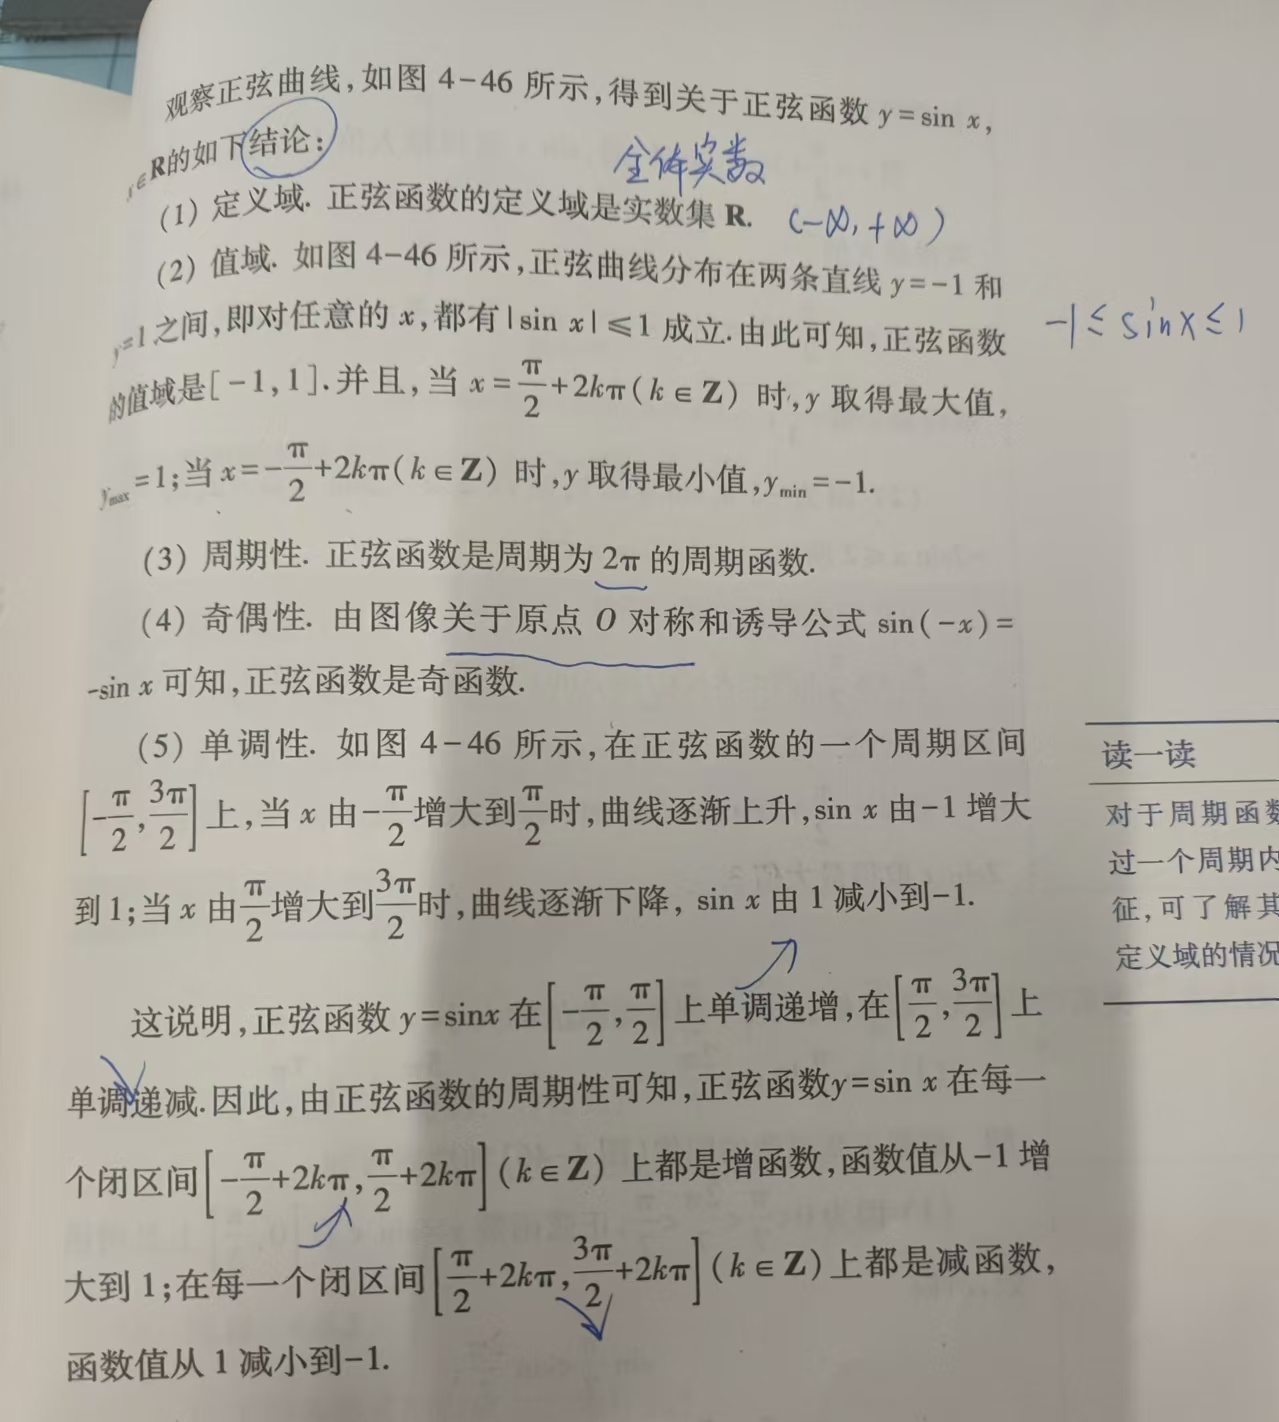 观察正弦曲线,如图 4-46 所示,得到关于正弦函数 y=sin x,
x∈R的如下结论:
全体实数
(1) 定义域. 正弦函数的定义域是实数集 R. (-∞,+∞)
(2) 值域. 如图 4-46 所示,正弦曲线分布在两条直线 y=-1 和
y=1 之间,即对任意的 x,都有|sin x|≤1 成立.由此可知,正弦函数
-1≤sinx≤1
的值域是[-1,1].并且,当 x=π/2+2kπ(k∈Z) 时,y 取得最大值,
ymax=1;当 x=-π/2+2kπ(k∈Z) 时,y 取得最小值,ymin=-1.
(3) 周期性. 正弦函数是周期为 2π 的周期函数.
(4) 奇偶性. 由图像关于原点 O 对称和诱导公式 sin(-x)=
-sin x 可知,正弦函数是奇函数.
(5) 单调性. 如图 4-46 所示,在正弦函数的一个周期区间
[-π/2,3π/2]上,当 x 由-π/2增大到π/2时,曲线逐渐上升,sin x 由-1 增大
到 1;当 x 由π/2增大到3π/2时,曲线逐渐下降, sin x 由 1 减小到-1.
这说明,正弦函数 y=sinx 在[-π/2,π/2]上单调递增,在[π/2,3π/2]上
单调递减.因此,由正弦函数的周期性可知,正弦函数y=sin x 在每一
个闭区间[-π/2+2kπ,π/2+2kπ](k∈Z) 上都是增函数,函数值从-1 增
大到 1;在每一个闭区间[π/2+2kπ,3π/2+2kπ](k∈Z)上都是减函数,
函数值从 1 减小到-1.
读一读
对于周期函数
过一个周期内
征,可了解其
定义域的情况